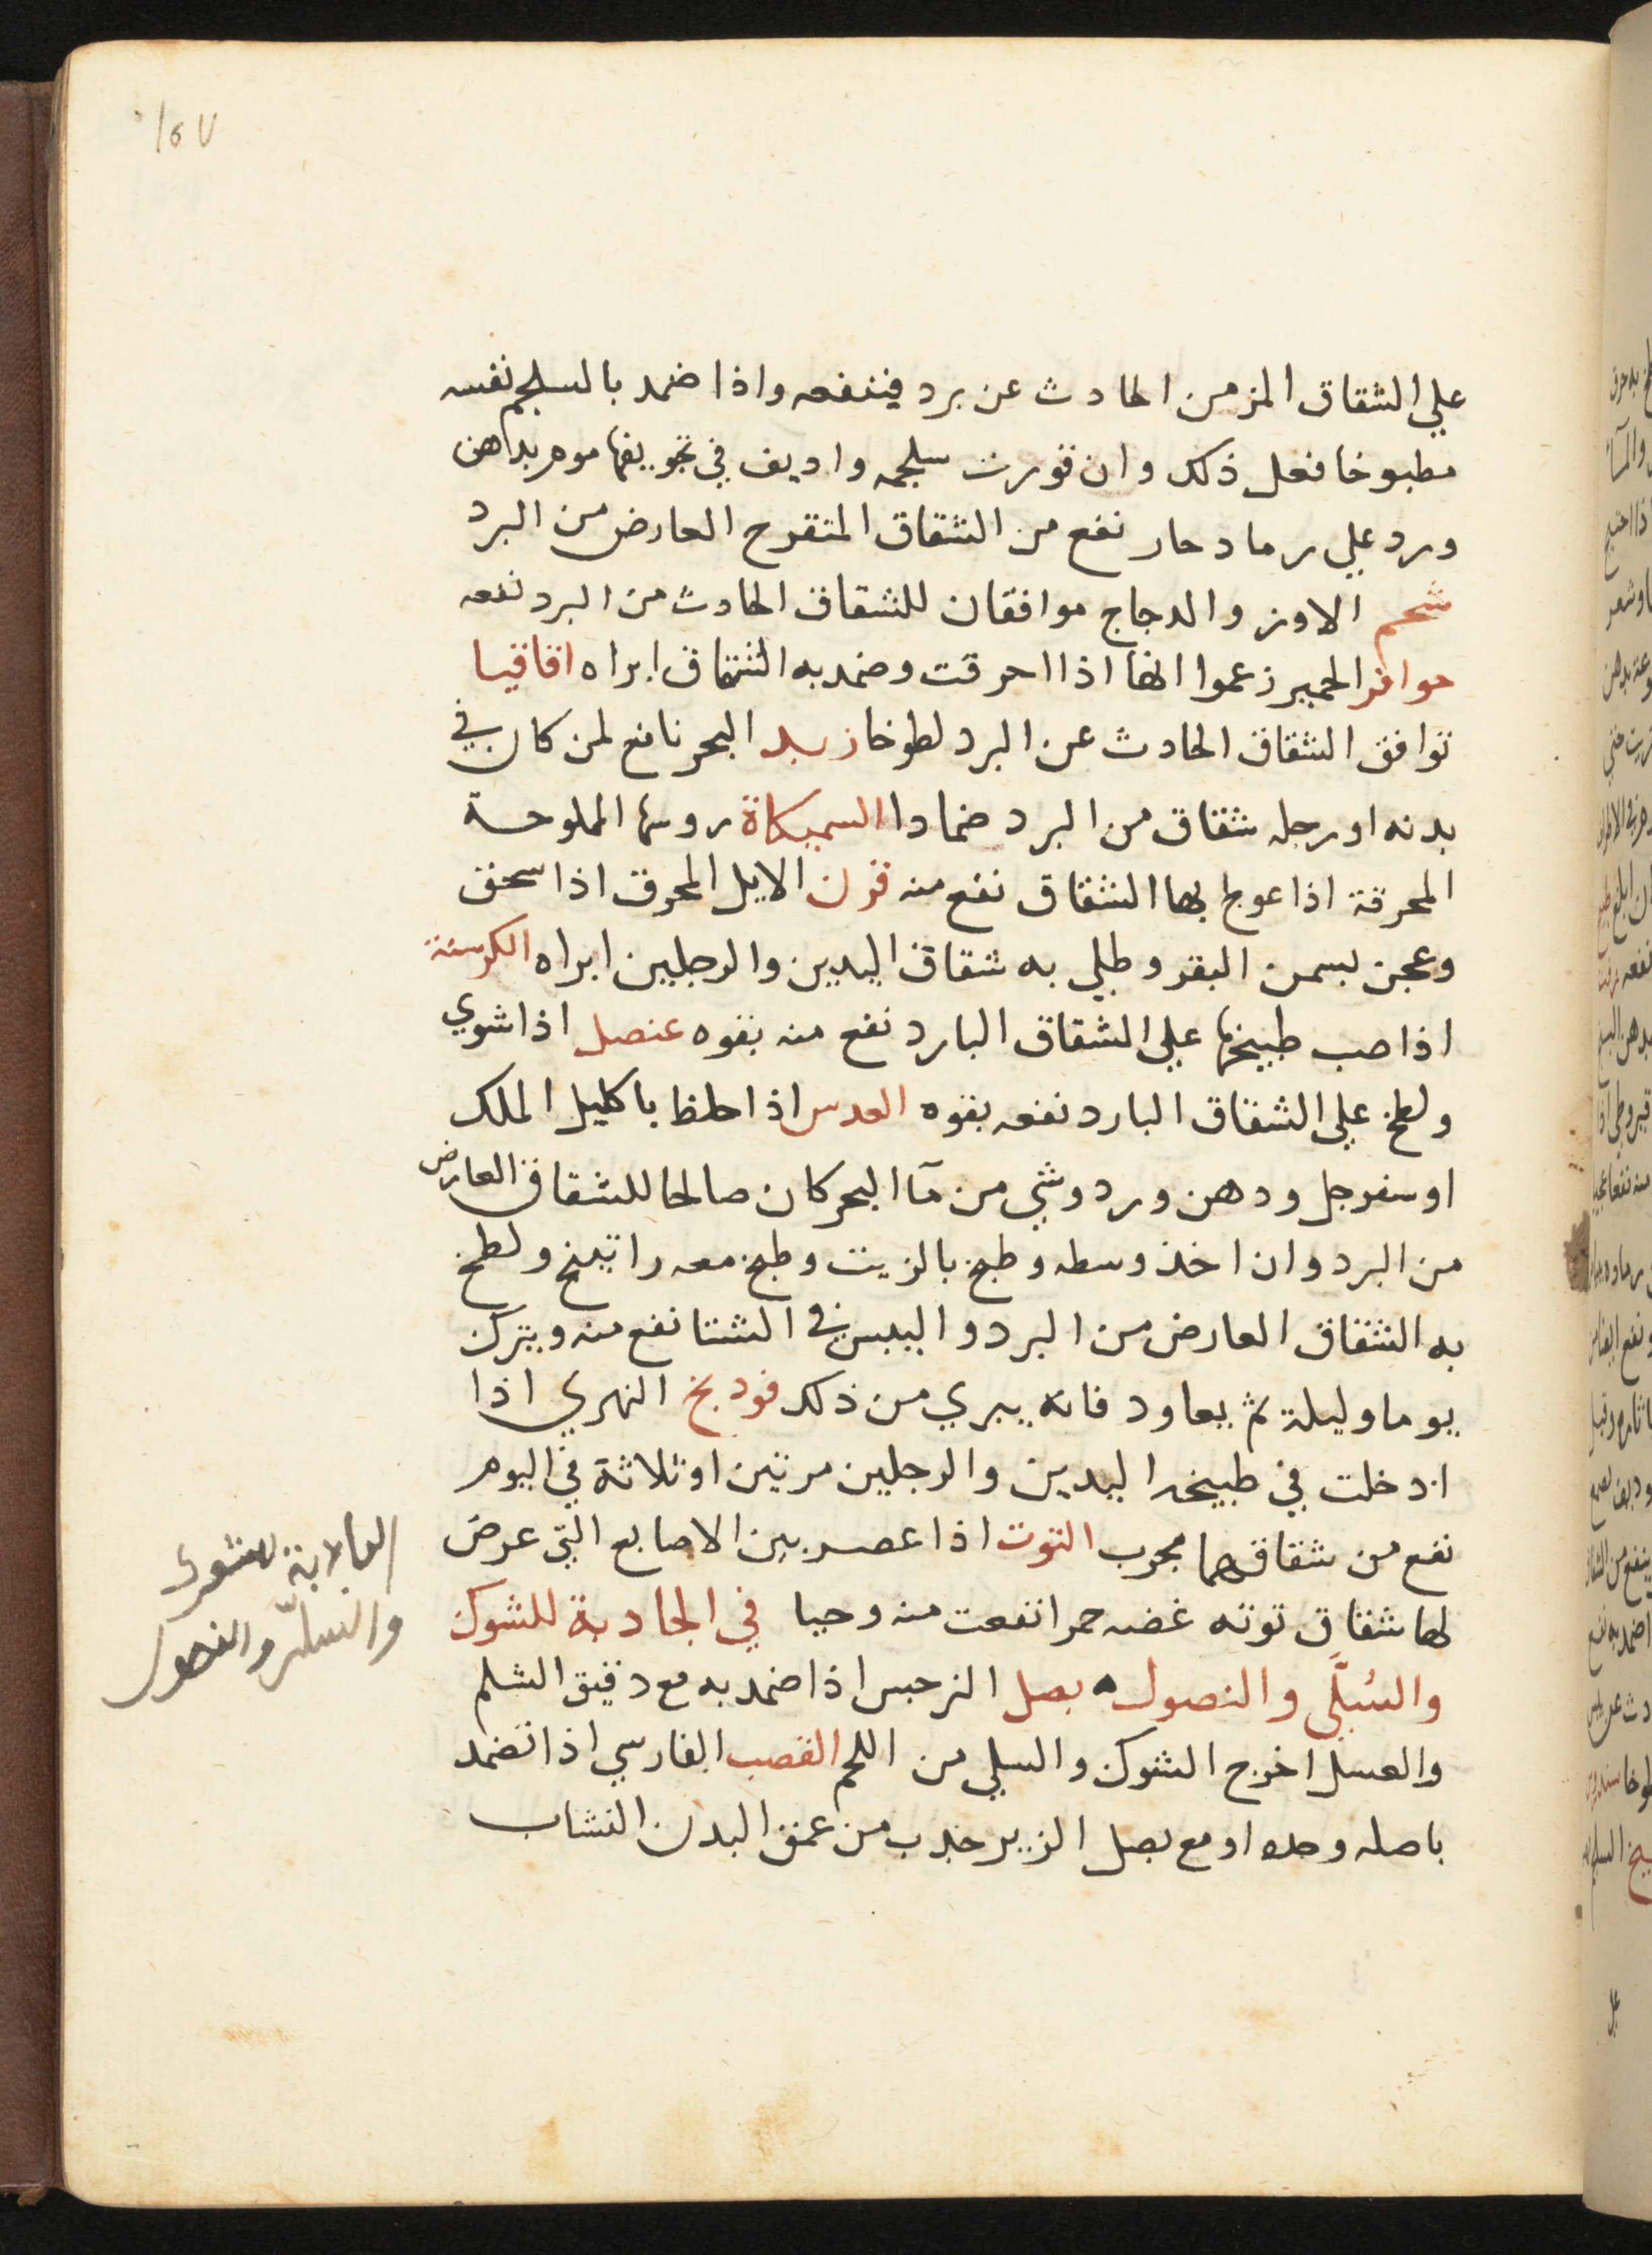 علي الشقاق المزمن الحادث عن برد فينفعه واذا ضمد بالسلجم نفسه
مطبوخا فعل ذلك وان قورت سلجمه واديف في تجويفها موم بدهن
ورد علي رماد حار نفع من الشقاق المتقرح العارض من البرد
شحم الاوز والدجاج موافقان للشقاق الحادث من البرد نفعه
حوافر الحمير زعموا انها اذا احرقت وضمد به الشقاق ابراه اقاقيا
توافق الشقاق الحادث عن البرد لطوخا زبد البحر نافع لمن كان في
بدنه او رجله شقاق من البرد ضمادا السميكاة روسها المملوحة
المحرقة اذا عولج بها الشقاق نفع منه قرن الايل المحرق اذا سحق
وعجن بسمن البقر وطلي به شقاق اليدين والرجلين ابراه الكرسنة
اذا صب طبيخها علي الشقاق البارد نفع منه بقوه عنصل اذا شوي
ولطخ علي الشقاق البارد نفعه بقوه العدس اذا خلط باكليل الملك
او سفرجل ودهن ورد وشي من مآ البحر كان صالحا للشقاق العارض
من البرد وان اخذ وسطه وطبخ بالزيت وطبخ معه راتينج ولطخ
به الشقاق العارض من البرد واليبس في الشتا نفع منه ويترك
يوما وليلة ثم يعاود فانه يبري من ذلك فودنج النهري اذا
ادخلت في طبيخه اليدين والرجلين مرتين او ثلاثة في اليوم
نفع من شقاقهما مجرب التوت اذا عصر بين الاصابع التي عرض
لها شقاق توته غضه حمرا نفعت منه وحيا في الجاذبة للشوك
والسُّلَّي والنصول بصل النرجس اذا ضمد به مع دقيق الشلم
والعسل اخرج الشوك والسلي من اللحم القصب الفارسي اذا تضمد
باصله وحده او مع بصل الزير جذب من عمق البدن النشاب
الجاذبة للشوك
والسلّي والنصول
١٥٧